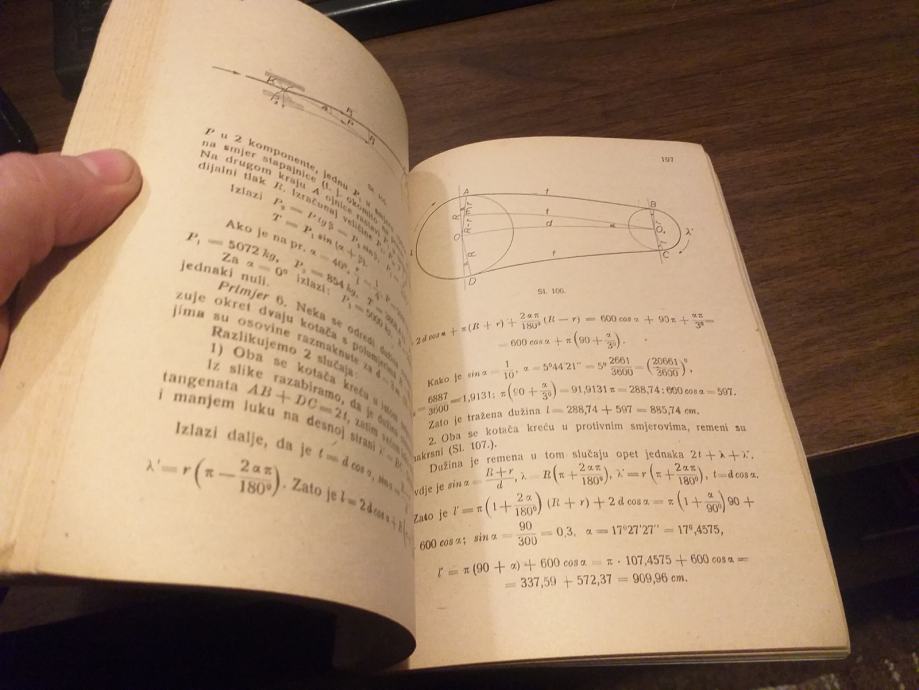 P u 2 komponente, jednu P₁ u
na smjer stapajnice (t. j. okomito
Na drugom kraju A ojnice rastavi
dijalni tlak R. Izračunaj veličine
Izlazi P₂ = P tg β
T = P₁ sin (α + β).
Ako je na pr. α = 40°,
P₁ = 5072 kg, P₂ = 854 kg, T =
Za α = 0° izlazi: P₁ = 5000 kg,
jednaki nuli.
Primjer 6. Neka se odredi dužina
zuje okret dvaju kotača s polumjerima R
jima su osovine razmaknute za d =
Razlikujemo 2 slučaja:
1) Oba se kotača kreću u
Iz slike razabiramo, da je dužina
tangenata AB + DC = 2t, zatim
i manjem luku na desnoj strani λ' =
Izlazi dalje, da je t = d cos α, sin α
λ' = r (π − 2απ/180°). Zato je l = 2d cos α +
197
A t B
R r t
R-r d α O'
O λ'
R t C
D
Sl. 106.
2 d cos α + π (R + r) + 2απ/180° (R − r) = 600 cos α + 90 π + απ/3° =
= 600 cos α + π (90 + α/3°).
Kako je sin α = 1/10, α = 5°44'21'' = 5° 2661/3600 = (20661/3600)°,
6887/3600 = 1,9131; π (90 + α/3°) = 91,9131 π = 288,74; 600 cos α = 597.
Zato je tražena dužina l = 288,74 + 597 = 885,74 cm.
2. Oba se kotača kreću u protivnim smjerovima, remeni su
nakrsni (Sl. 107.).
Dužina je remena u tom slučaju opet jednaka 2t + λ + λ',
gdje je sin α = R + r/d, λ = R (π + 2απ/180°), λ' = r (π + 2απ/180°), t = d cos α.
Zato je l' = π (1 + 2α/180°) (R + r) + 2 d cos α = π (1 + α/90°) 90 +
600 cos α; sin α = 90/300 = 0,3, α = 17°27'27'' = 17°,4575,
l' = π (90 + α) + 600 cos α = π · 107,4575 + 600 cos α =
= 337,59 + 572,37 = 909,96 cm.